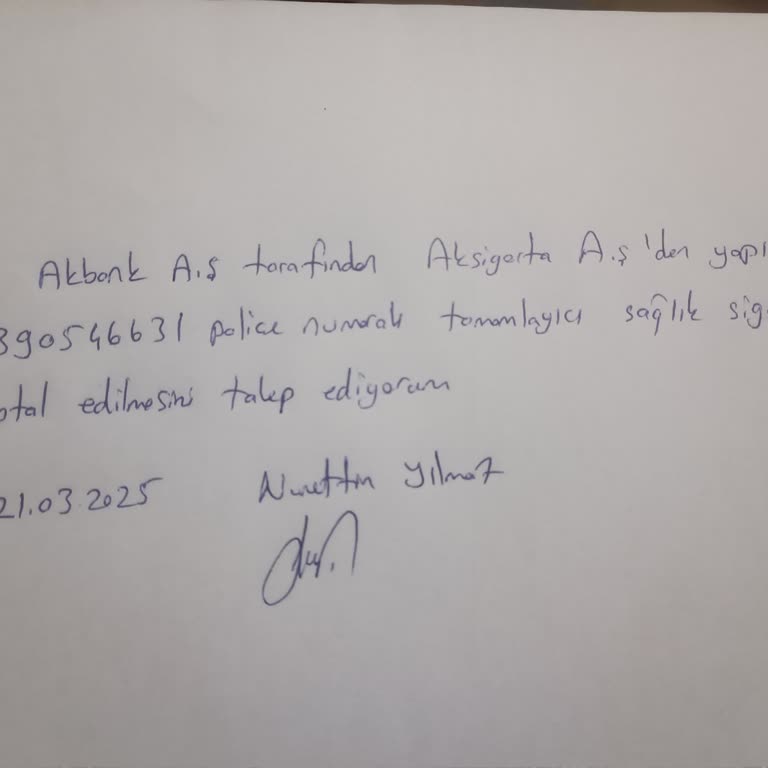 Akbank A.Ş tarafından Aksigorta A.Ş'den yapı
390546631 police numaralı tamamlayıcı sağlık sig
ptal edilmesini talep ediyorum
21.03.2025 Nurettin Yılmaz